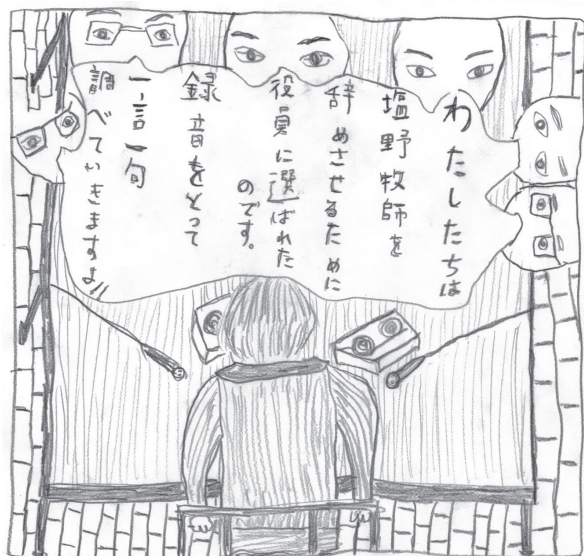 わたしたちは
塩野牧師を
辞めさせるために
役員に選ばれた
のです。
録音をとって
一言一句
調べていきますよ!!